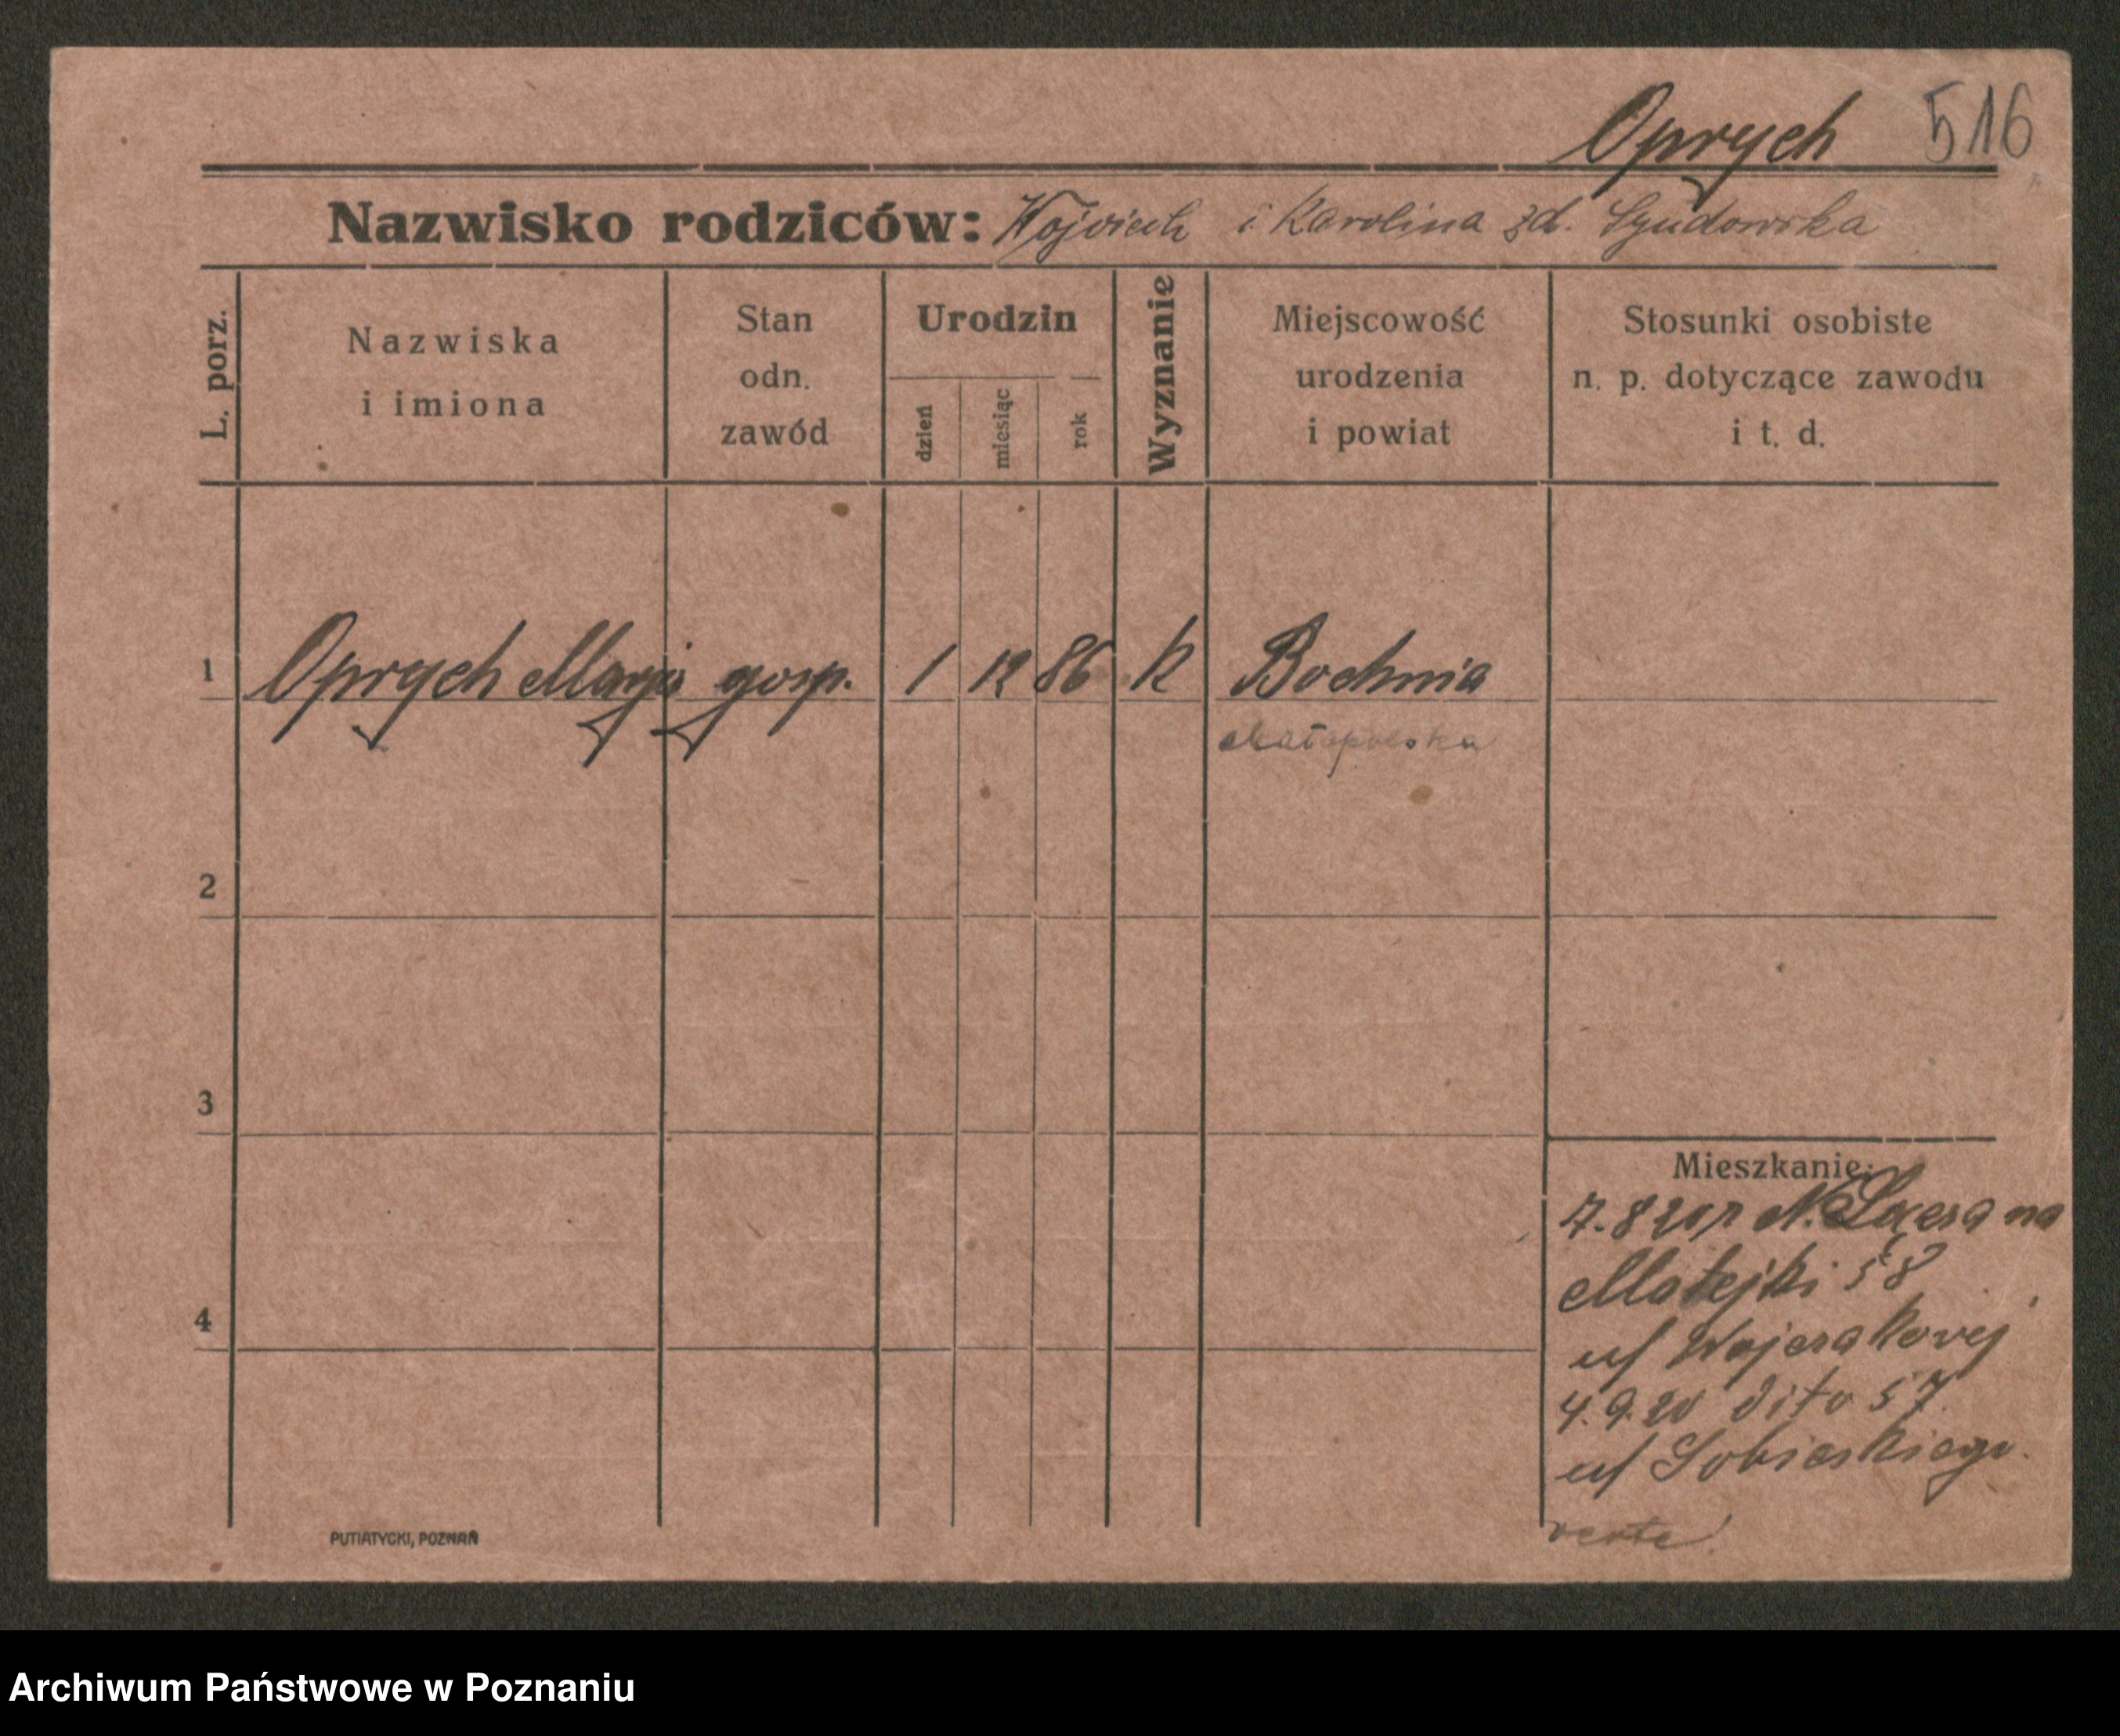 Oprych 516
Nazwisko rodziców: Wojciech i Karolina zd.
L. porz.
Nazwiska
i imiona
Stan
odn.
zawód
Urodzin
dzień
miesiąc
rok
Wyznanie
Miejscowość
urodzenia
i powiat
Stosunki osobiste
n. p. dotyczące zawodu
i t. d.
1 Oprych Marja gosp. 1 12 86 k Bochnia
Małopolska
2
3
4
Mieszkanie:
7.8 20 na
Matejki 58
Wojczakovej
4.9.20 dito 57
Sobieskiego.
verte!
PUTIATYCKI, POZNAŃ
Archiwum Państwowe w Poznaniu